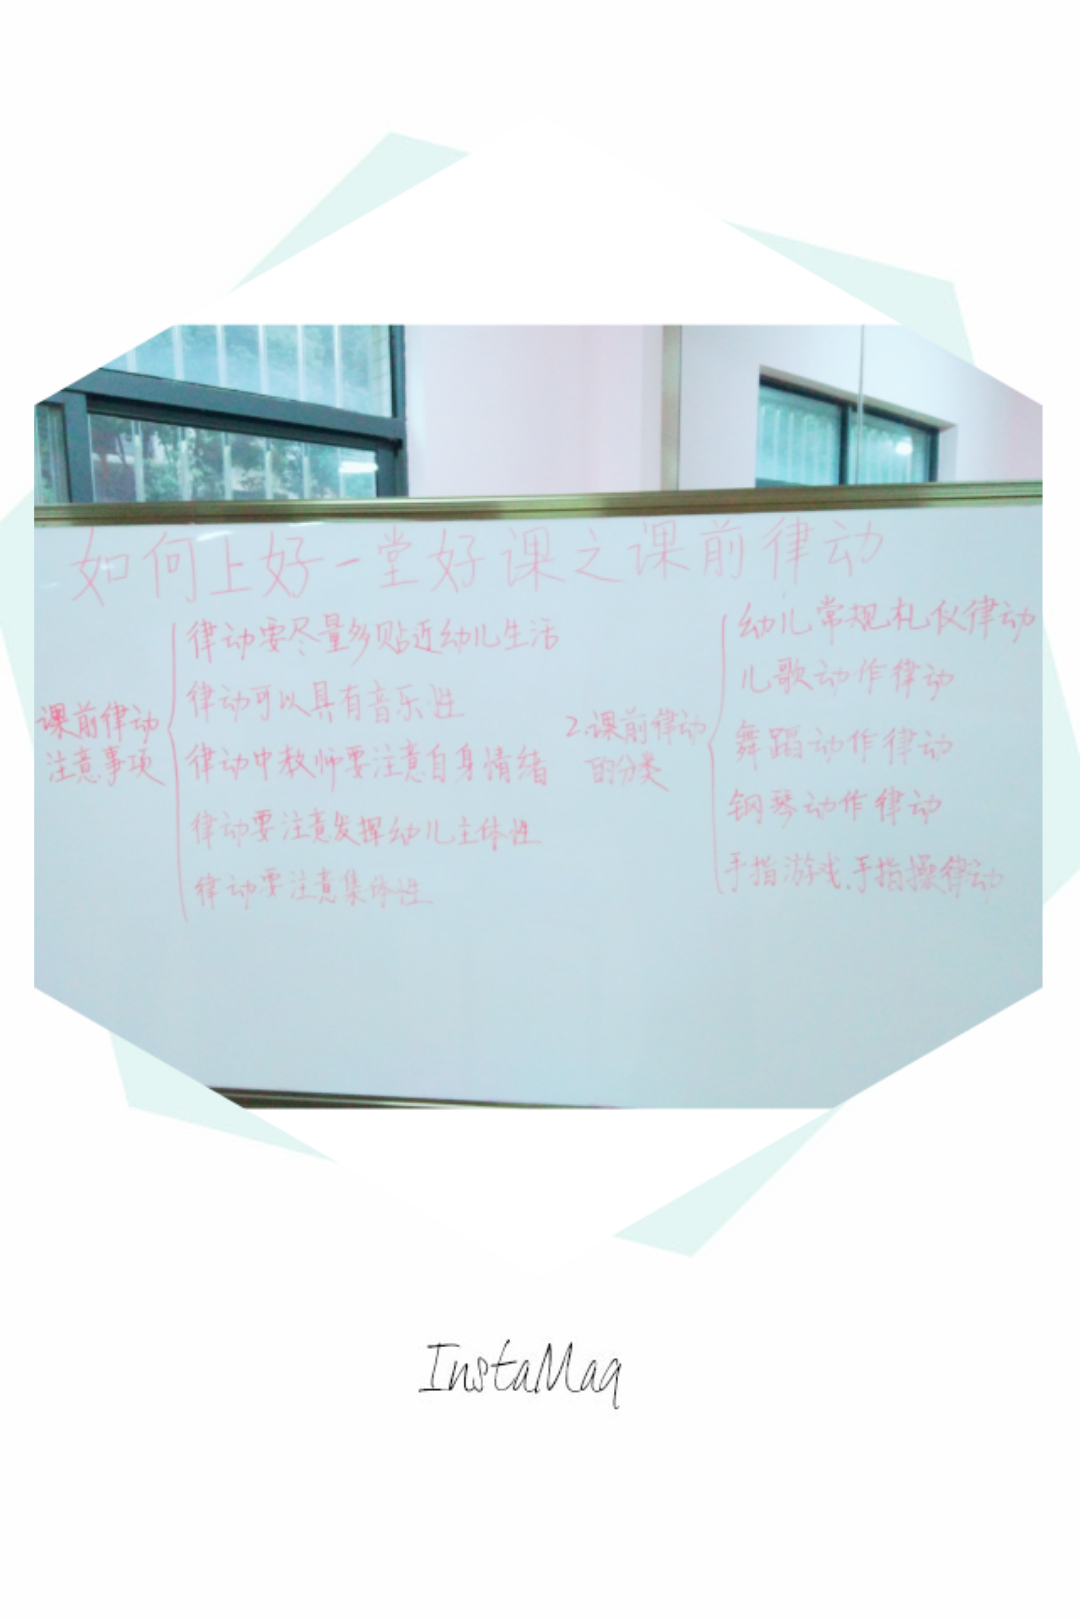 如何上好一堂好课之课前律动
课前律动
注意事项
律动要尽量多贴近幼儿生活
律动可以具有音乐性
律动中教师要注意自身情绪
律动要注意发挥幼儿主体性
律动要注意集体性
2.课前律动
的分类
幼儿常规礼仪律动
儿歌动作律动
舞蹈动作律动
钢琴动作律动
手指游戏、手指操律动
InstaMag